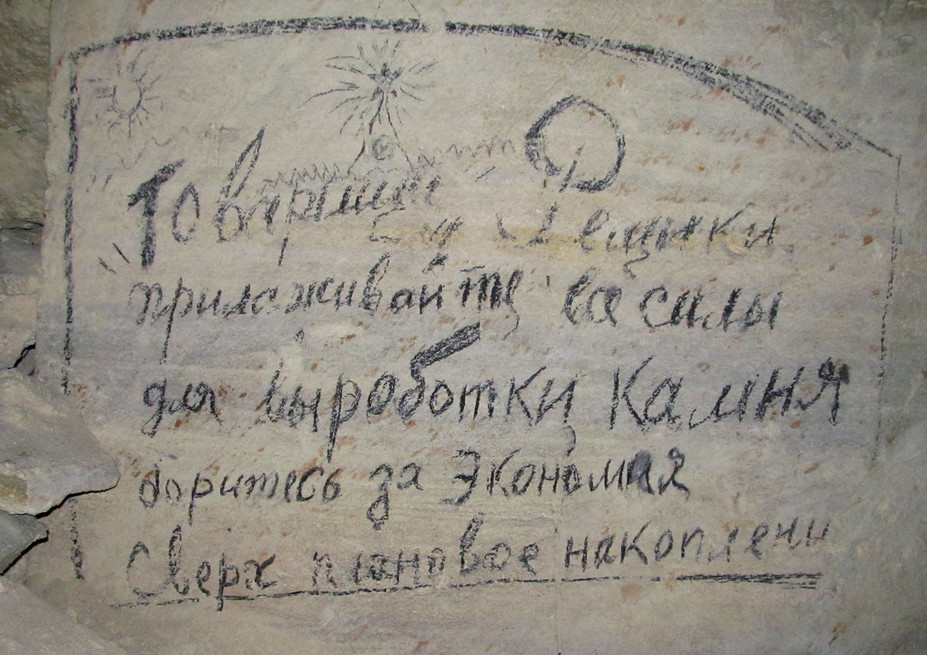 Товарищи Резчики
прилаживайте все силы
для выроботки камня
боритесь за Экономия
Сверх плановое накоплени